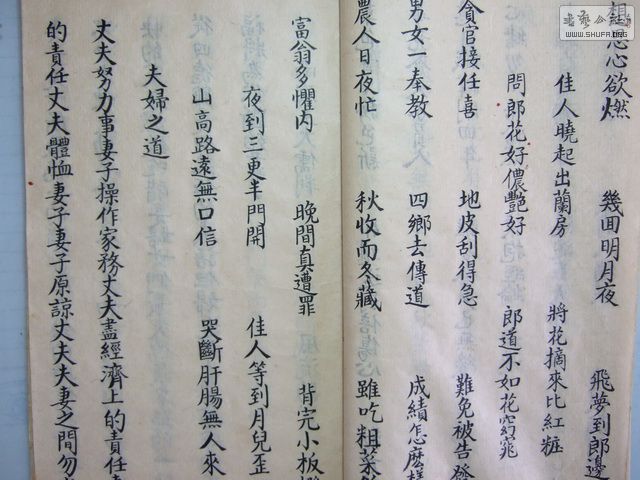 想思心欲燃 幾回明月夜 飛夢到郎邊
佳人曉起出蘭房 將花摘來比紅粧
問郎花好儂艷好 郎道不如花窈窕
貪官接任喜 地皮刮得急 難免被告發
男女一奉教 四鄉去傳道 成績怎麽樣
農人日夜忙 秋收而冬藏 雖吃粗菜
富翁多懼內 晚間真遭罪 背完小板櫈
夜到三更半門開 佳人等到月兒歪
山高路遠無口信 哭斷肝腸無人來
夫婦之道
丈夫努力事妻子操作家務丈夫盡經濟上的責任
的責任丈夫體恤妻子妻子原諒丈夫夫妻之間勿
書藝公社
WWW.SHUFA.ORG